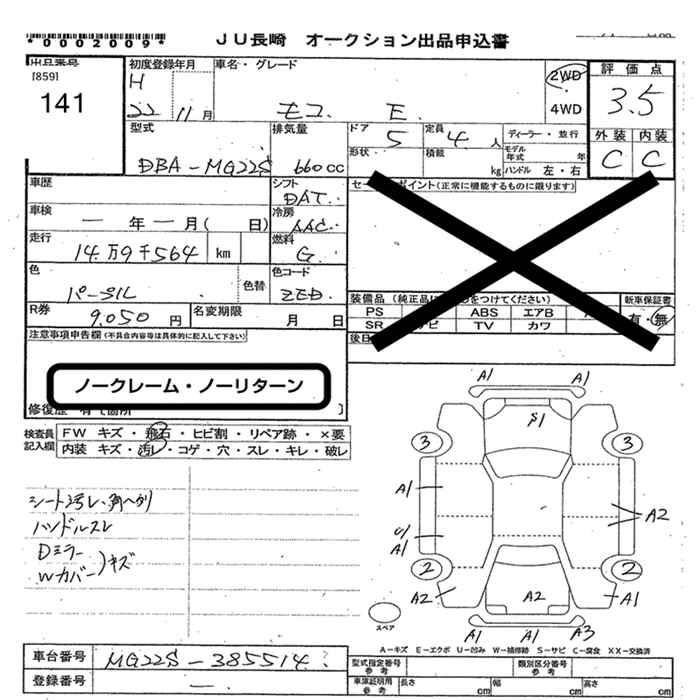 *0002009*
JU長崎 オークション出品申込書
[859]
141
初度登録年月
車名・グレード
H
22 11月
モコ E
2WD
4WD
評価点
3.5
外装 内装
C C
型式
DBA-MG22S
排気量
660cc
ドア
5
定員
4人
形状
積載
kg
ディーラー・並行
モデル年式 年
ハンドル 左・右
車歴
シフト
DAT
セールスポイント(正常に機能するものに限ります)
車検
一年一月( 日)
冷房
AAC
走行
14万9千564 km
燃料
G
色
パープル
色替
色コード
ZED
装備品
PS
ABS エアB
SR
TV カワ
新車保証書
有・無
R券
9,050円
名変期限
月 日
注意事項申告欄(不具合内容等は具体的に記入して下さい)
ノークレーム・ノーリターン
修復歴 有て箇所
検査員記入欄
FW キズ・飛石・ヒビ割・リペア跡・×要
内装 キズ・汚レ・コゲ・穴・スレ・キレ・破レ
シート汚レ・
ハンドルスレ
Dミラー
Wカバー)キズ
A1 A1
S1
3 3
A1
A2
A1
2 2
A2 A2 A1
A1 A1 A3
スペア
A-キズ E-エクボ U-凹み W-補修跡 S-サビ C-腐食 XX-交換済
車台番号
MG22S-385514
登録番号
—
型式指定番号
参考
類別区分番号
参考
車庫証明用
参考
長さ cm
幅 cm
高さ cm